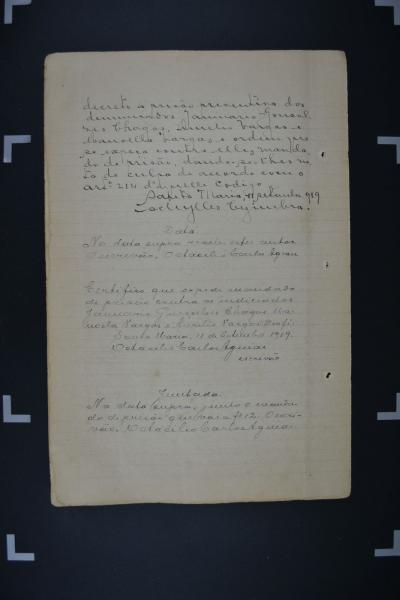 decreto a prisão preventiva dos
denunciados Januario Gonsal
ves Chagas, Aurelio Vargas e
Manoella Vargas, e ordeno que
se expeça contra elles, manda
do de prisão, dando-se-lhes no
ta de culpa de accordo com o
artº 214 d'aquelle Codigo.
Santa Maria, 11 setembro 919
Data
Na data supra recebi estes autos
O escrivão, Octacilio Carlos Aguiar
Certifico que expedi mandado
de prisão contra os indiciados
Januario Gonçalves Chagas, Ma-
noela Vargas e Aurelio Vargas
Santa Maria, 11 de Setembro 1919.
Octacilio Carlos Aguiar
escrivão
Juntada
Na data supra, junto o manda
do de prisão que vae a fl 12. O escri-
vão, Octacilio Carlos Aguiar